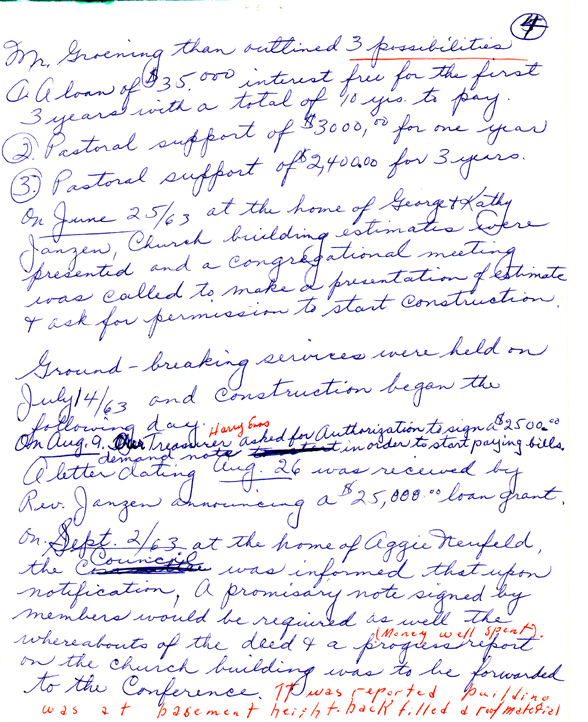 4
Mr. Groening than outlined 3 possibilities
1. A loan of $35.000 interest free for the first
3 years with a total of 10 yrs. to pay.
2. Pastoral support of $3000,00 for one year
3. Pastoral support of $2,400.00 for 3 years.
On June 25/63 at the home of George & Kathy
Janzen, Church building estimates were
presented and a congregational meeting
was called to make a presentation of estimate
& ask for permission to start construction.
Ground-breaking services were held on
July 14/63 and construction began the
following day.
Harry Enns
On Aug. 9. Our Treasurer asked for Authorization to sign a $2500.00
demand note in order to start paying bills.
A letter dating Aug. 26 was received by
Rev. Janzen announcing a $25,000.00 loan grant.
On Sept. 2/63 at the home of Aggie Neufeld,
the Council was informed that upon
notification, A promisary note signed by
members would be required as well the
(Money well spent).
whereabouts of the deed & a progress report
on the church building was to be forwarded
to the Conference. It was reported building
was at basement height-back filled & roof material